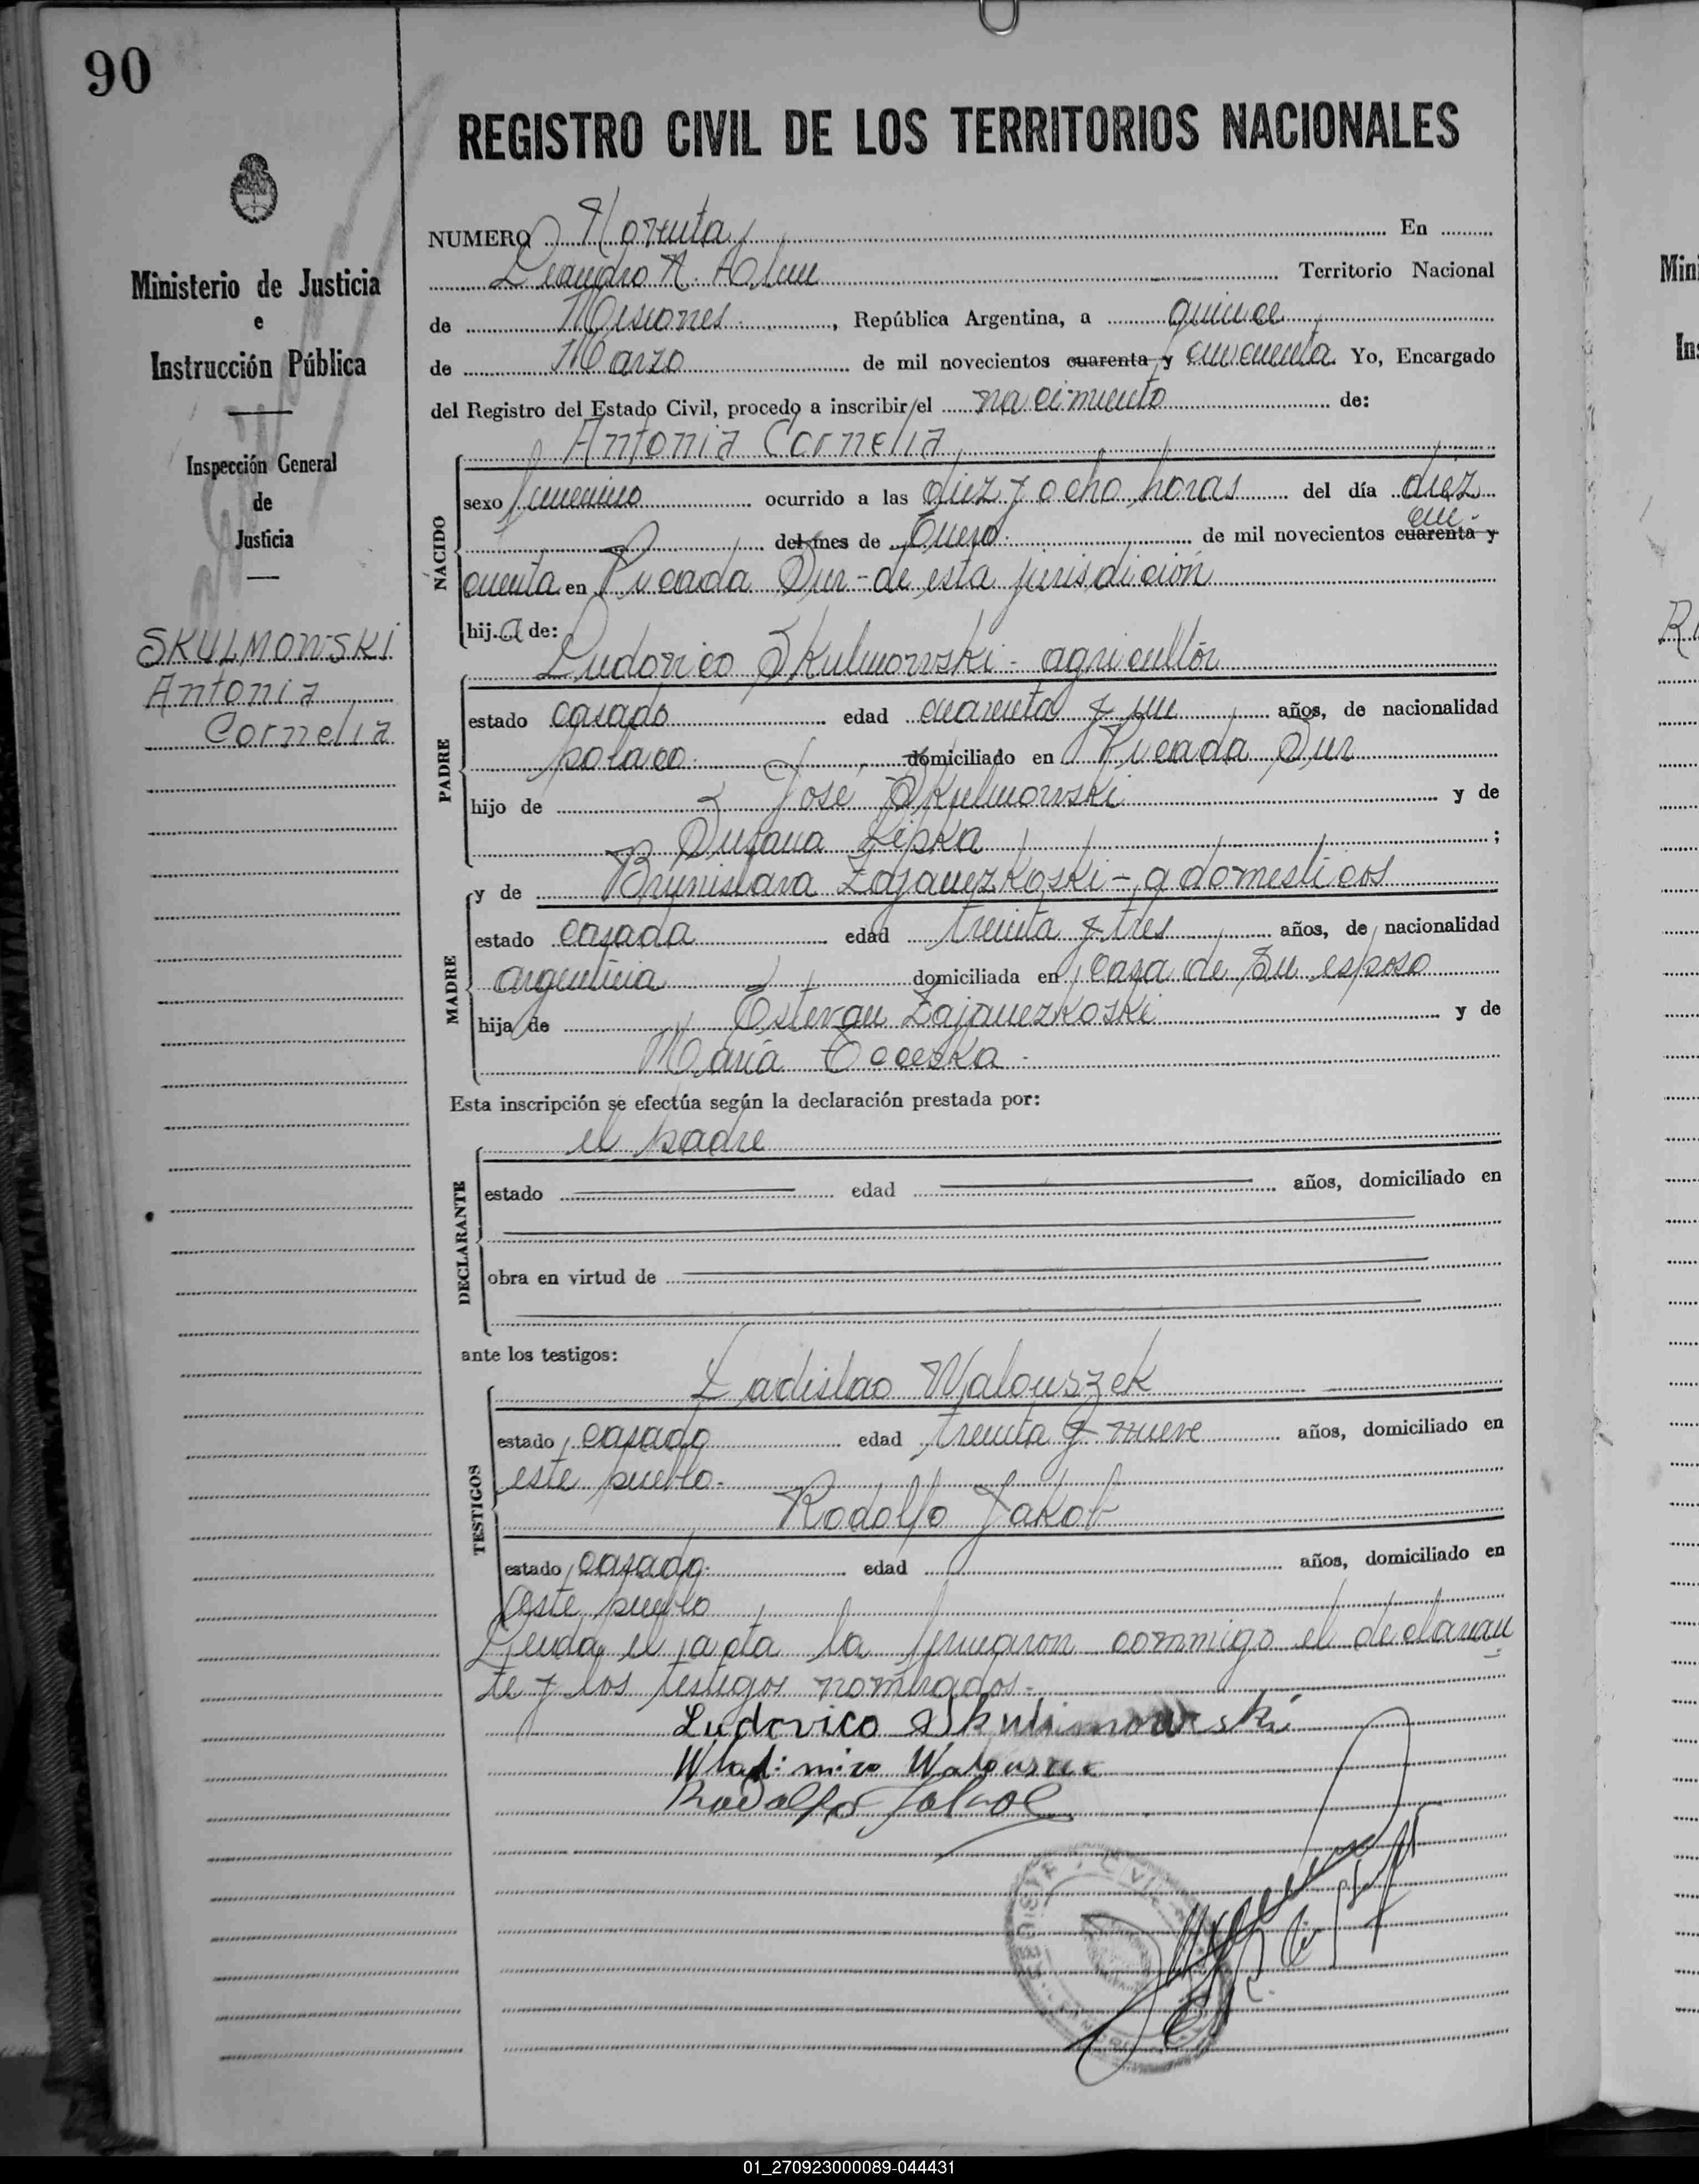 90
REGISTRO CIVIL DE LOS TERRITORIOS NACIONALES
Ministerio de Justicia
e
Instrucción Pública
Inspección General
de
Justicia
SKULMOWSKI
Antonia
Cornelia
NUMERO Noventa En
Leandro N. Alem Territorio Nacional
de Misiones , República Argentina, a quince
de Marzo de mil novecientos cuarenta y cincuenta Yo, Encargado
del Registro del Estado Civil, procedo a inscribir el nacimiento de:
Antonia Cornelia
NACIDO
sexo femenino ocurrido a las diez y ocho horas del día diez
del mes de Enero de mil novecientos cuarenta y cin-
cuenta en Picada Sur - de esta jurisdición
hija de:
Ludovico Skulmowski - agricultor
PADRE
estado casado edad cuarenta y un años, de nacionalidad
polaco domiciliado en Picada Sur
hijo de José Skulmowski y de
Susana Kipka ;
y de Brunislava Zajanczkoski - q domesticos
MADRE
estado casada edad treinta y tres años, de nacionalidad
argentina domiciliada en casa de su esposo
hija de Estevan Zajanczkoski y de
María
Esta inscripción se efectúa según la declaración prestada por:
el padre
DECLARANTE
estado edad años, domiciliado en
obra en virtud de
ante los testigos:
Ladislao Walouszek
TESTIGOS
estado casado edad treinta y nueve años, domiciliado en
este pueblo.
Rodolfo Jakob
estado casado edad años, domiciliado en
este pueblo
Leida el acta la firmaron conmigo el declaran
te y los testigos nombrados.
Ludovico Skulimowski
Wladimiro
Rodolfo Jakob
REGISTRO CIVIL
Min
In
01_270923000089-044431